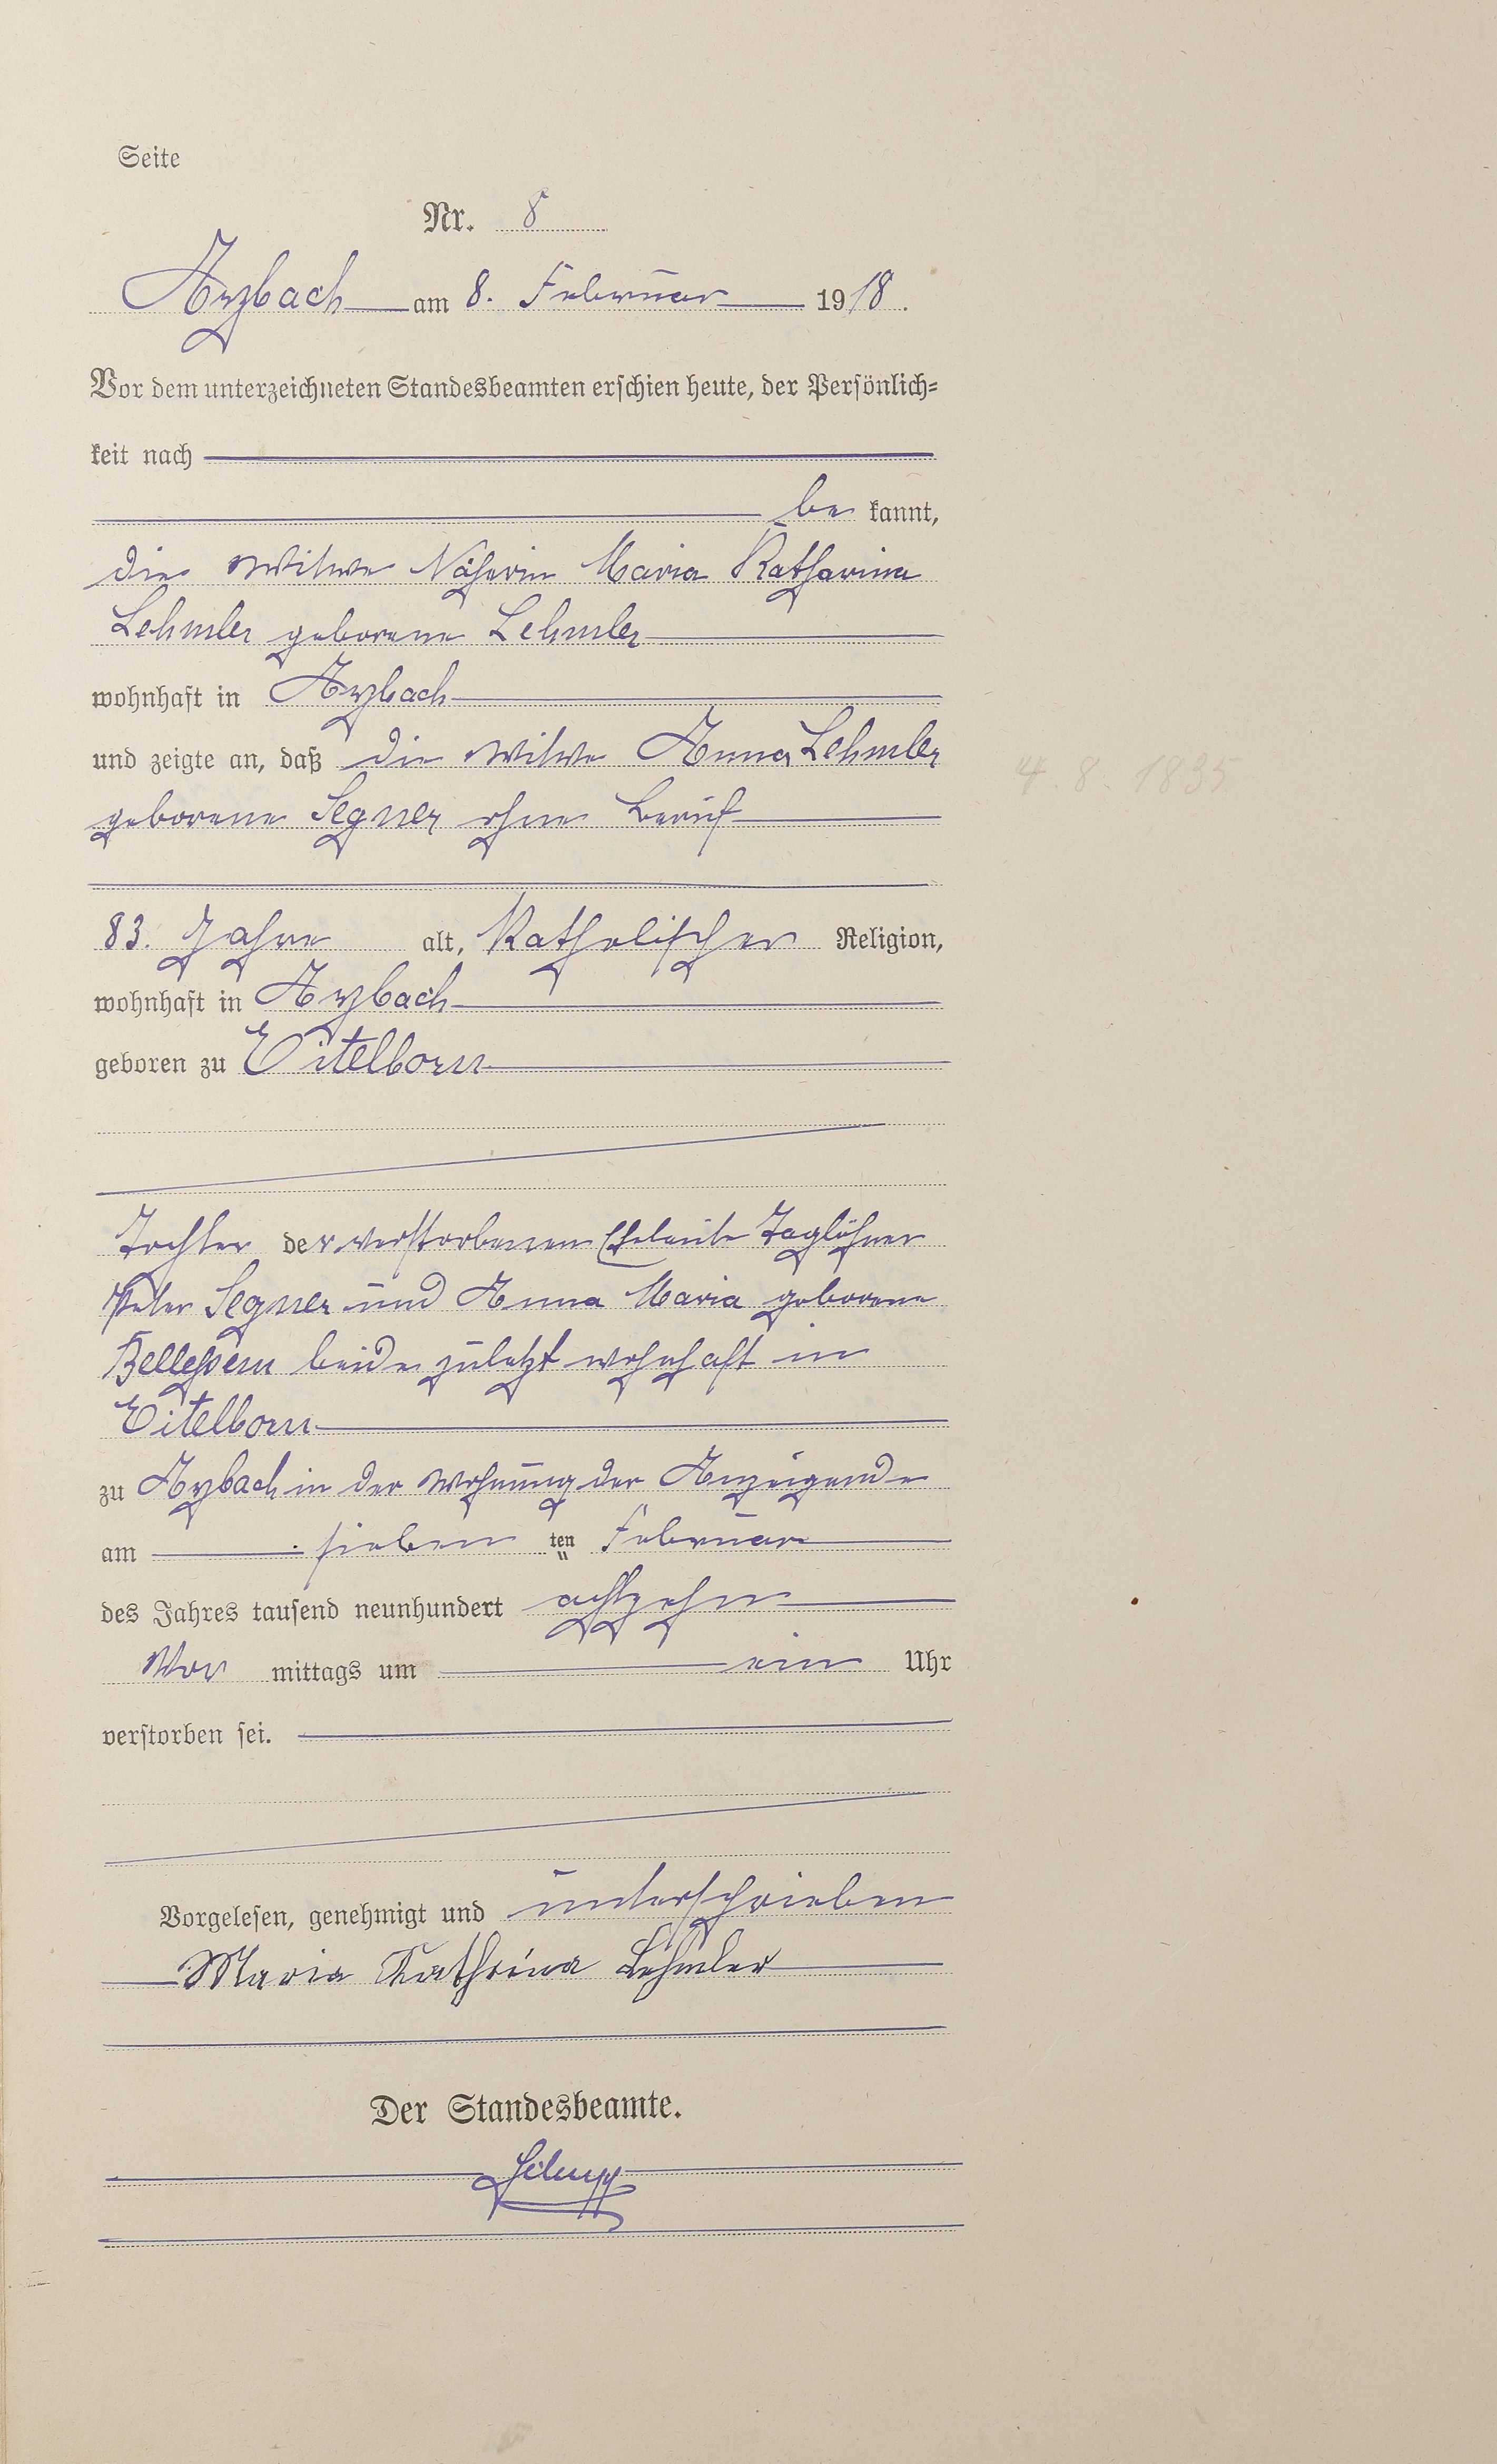 Seite
Nr. 8
Arzbach am 8. Februar 1918.
Vor dem unterzeichneten Standesbeamten erschien heute, der Persönlich=
keit nach
be kannt,
die Witwe Näherin Maria Katharina
Lehmler geborene Lehmler
wohnhaft in Arzbach
und zeigte an, daß die Witwe Anna Lehmler
4. 8. 1835
geborene Segner ohne Beruf
83. Jahre alt, Katholischer Religion,
wohnhaft in Arzbach
geboren zu Eitelborn
Tochter der verstorbenen Eheleute Taglöhner
Peter Segner und Anna Maria geborene
beide zuletzt wohnhaft in
Eitelborn
zu Arzbach in der Wohnung der Anzeigende
am sieben ten Februar
des Jahres tausend neunhundert achtzehn
Vor mittags um ein Uhr
verstorben sei.
Vorgelesen, genehmigt und unterschrieben
Maria Kathrina Lehmler
Der Standesbeamte.